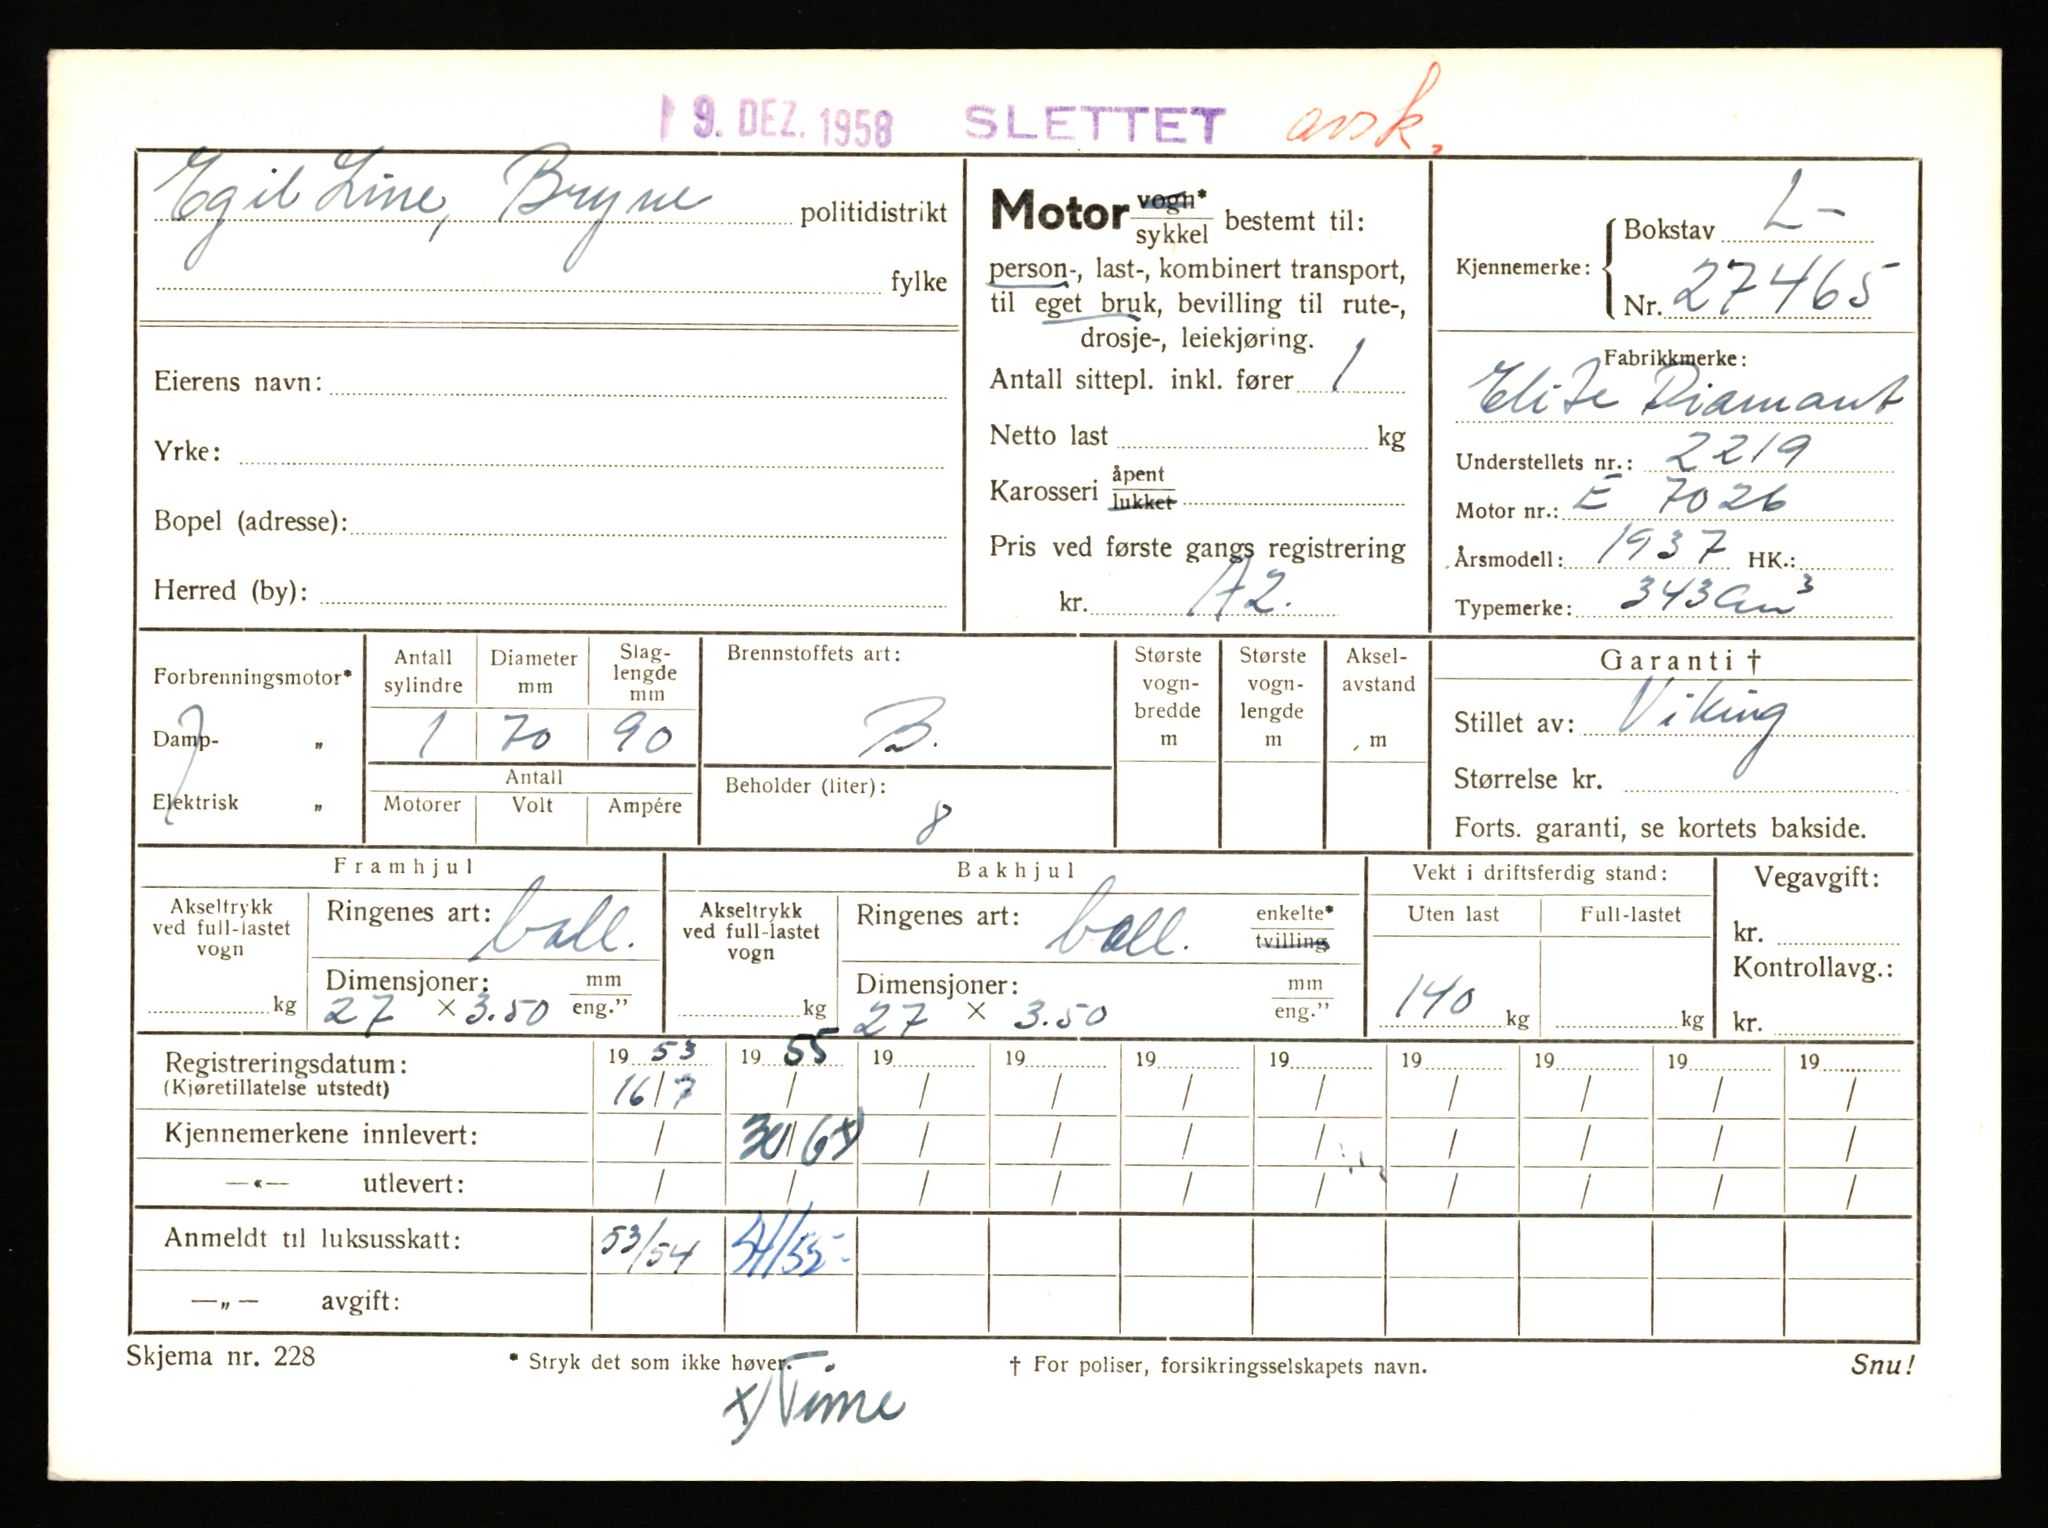 19. DEZ. 1958 SLETTET avsk.
Egil Line, Bryne politidistrikt
fylke
Eierens navn:
Yrke:
Bopel (adresse):
Herred (by):
Motor vogn* / sykkel bestemt til:
person-, last-, kombinert transport,
til eget bruk, bevilling til rute-,
drosje-, leiekjøring.
Antall sittepl. inkl. fører 1
Netto last kg
Karosseri åpent / lukket
Pris ved første gangs registrering
kr. A2.
Kjennemerke: Bokstav L-
Nr. 27465
Fabrikkmerke:
Elite Diamant
Understellets nr.: 2219
Motor nr.: E 7026
Årsmodell: 1937 HK.:
Typemerke: 343 cm³
Forbrenningsmotor*
Damp- „
Elektrisk „
Antall sylindre Diameter mm Slaglengde mm
1 70 90
Antall
Motorer Volt Ampére
Brennstoffets art:
B.
Beholder (liter):
8
Største vogn-bredde m
Største vogn-lengde m
Aksel-avstand m
Garanti †
Stillet av: Viking
Størrelse kr.
Forts. garanti, se kortets bakside.
Framhjul
Akseltrykk ved full-lastet vogn
kg
Ringenes art: ball.
Dimensjoner: mm / eng."
27 × 3.50
Bakhjul
Akseltrykk ved full-lastet vogn
kg
Ringenes art: ball. enkelte* / tvilling
Dimensjoner: mm / eng."
27 × 3.50
Vekt i driftsferdig stand:
Uten last Full-lastet
140 kg kg
Vegavgift:
kr.
Kontrollavg.:
kr.
Registreringsdatum: 1953 1955 19 19 19 19 19 19 19 19
(Kjøretillatelse utstedt) 16/7 / / / / / / / / /
Kjennemerkene innlevert: / 30/6 x) / / / / / / / /
—«— utlevert: / / / / / / / / / /
Anmeldt til luksusskatt: 53/54 54/55-
—„— avgift:
Skjema nr. 228 * Stryk det som ikke høver. † For poliser, forsikringsselskapets navn. Snu!
x) Time